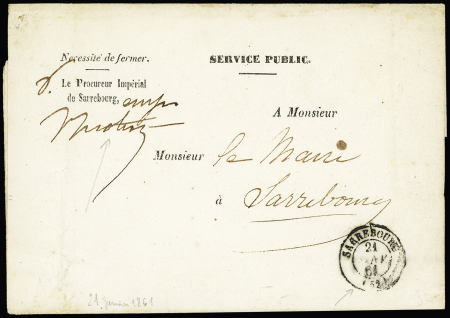 Nécessité de fermer.
SERVICE PUBLIC.
Le Procureur Impérial
de Sarrebourg,
A Monsieur
Monsieur le Maire
à Sarrebourg
SARREBOURG
21
JANV
61
(52)
21 janvier 1861